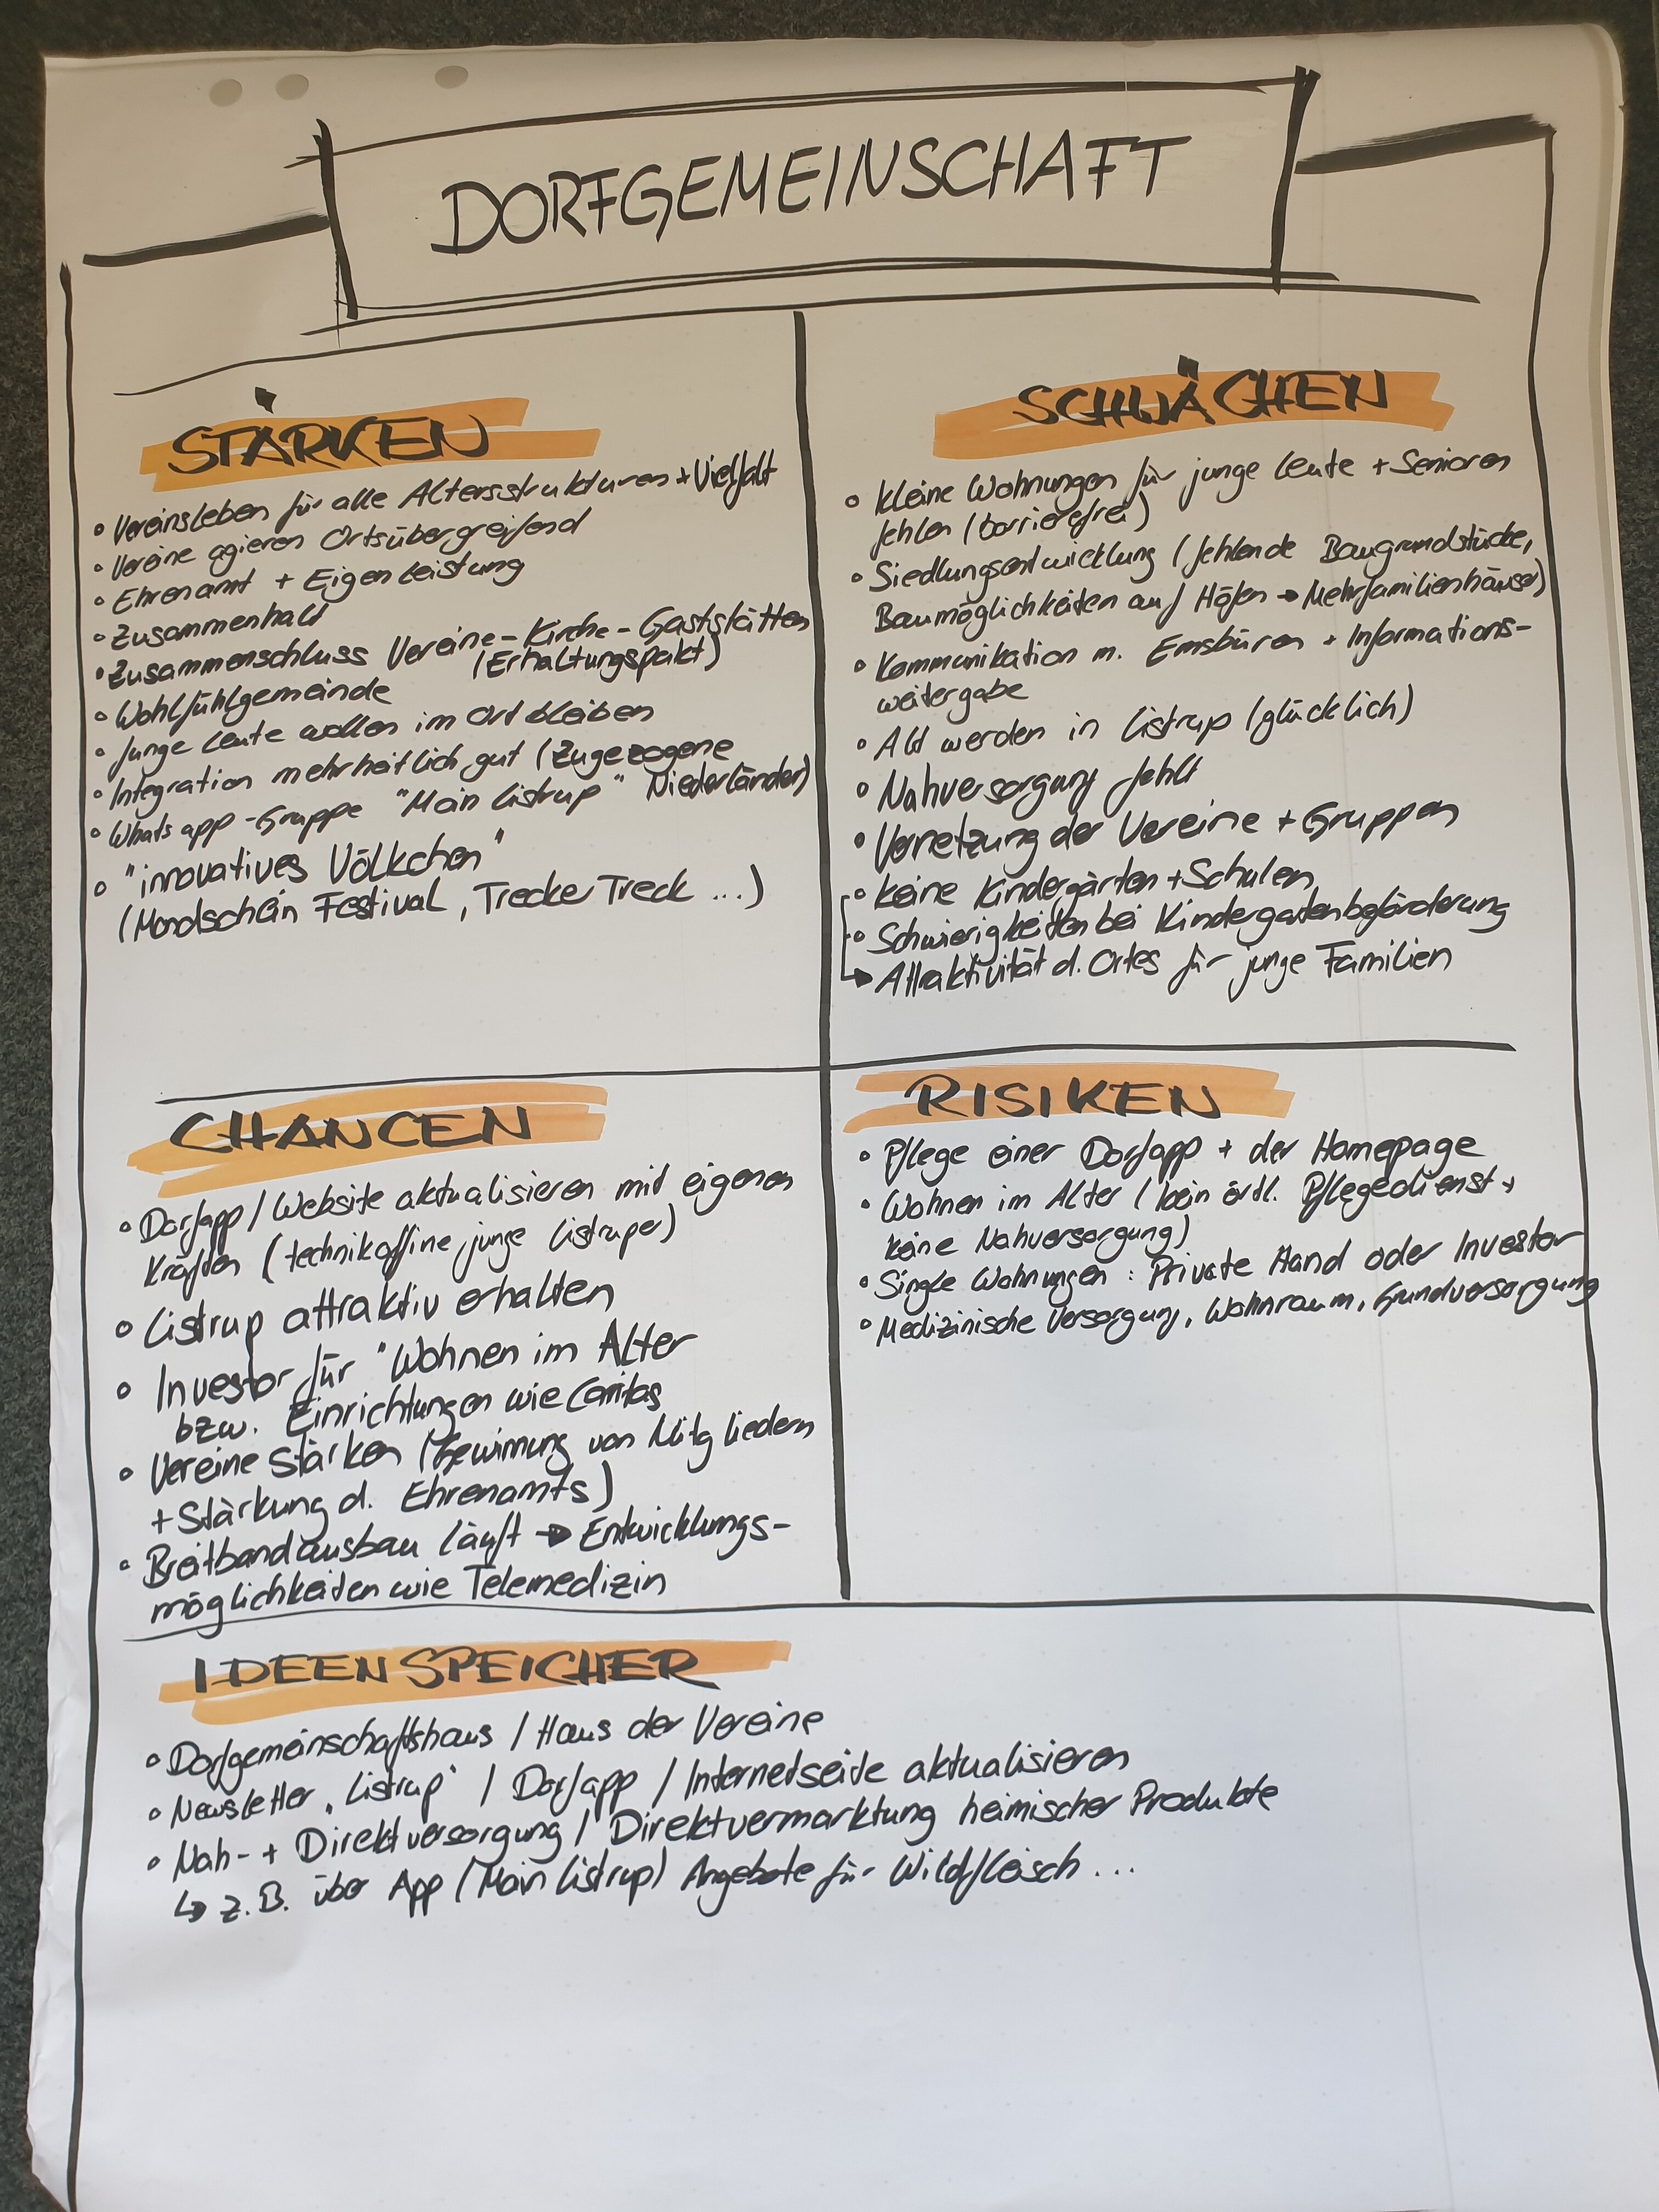 DORFGEMEINSCHAFT
STÄRKEN
• Vereinsleben für alle Altersstrukturen + Vielfalt
• Vereine agieren Ortsübergreifend
• Ehrenamt + Eigenleistung
• Zusammenhalt
• Zusammenschluss Vereine - Kirche - Gaststätten
(Erhaltungspakt)
• Wohlfühlgemeinde
• Junge Leute wollen im Ort bleiben
• Integration mehrheitlich gut (Zugezogene
Niederländer)
• Whats app - Gruppe "Moin Listrup"
• "innovatives Völkchen"
(Mondschein Festival, Trecke Treck ...)
SCHWÄCHEN
• kleine Wohnungen für junge Leute + Senioren
fehlen (barrierefrei)
• Siedlungsentwicklung (fehlende Baugrundstücke,
Baumöglichkeiten auf Höfen → Mehrfamilienhäuser)
• Kommunikation m. Emsbüren + Informations-
weitergabe
• Alt werden in Listrup (glücklich)
• Nahversorgung fehlt
• Vernetzung der Vereine + Gruppen
• keine Kindergärten + Schulen
• Schwierigkeiten bei Kindergartenbeförderung
→ Attraktivität d. Ortes für junge Familien
CHANCEN
• Dorfapp / Website aktualisieren mit eigenen
Kräften (technikaffine junge Listruper)
• Listrup attraktiv erhalten
• Investor für "Wohnen im Alter
bzw. Einrichtungen wie Caritas
• Vereine stärken (Gewinnung von Mitgliedern
+ Stärkung d. Ehrenamts)
• Breitbandausbau läuft → Entwicklungs-
möglichkeiten wie Telemedizin
RISIKEN
• Pflege einer Dorfapp + der Homepage
• Wohnen im Alter (kein örtl. Pflegedienst +
keine Nahversorgung)
• Single Wohnungen : Private Hand oder Investor
• Medizinische Versorgung, Wohnraum, Grundversorgung
IDEENSPEICHER
• Dorfgemeinschaftshaus / Haus der Vereine
• Newsletter „Listrup" / Dorfapp / Internetseite aktualisieren
• Nah- + Direktversorgung / Direktvermarktung heimischer Produkte
↳ z.B. über App (Moin Listrup) Angebote für Wildfleisch ...